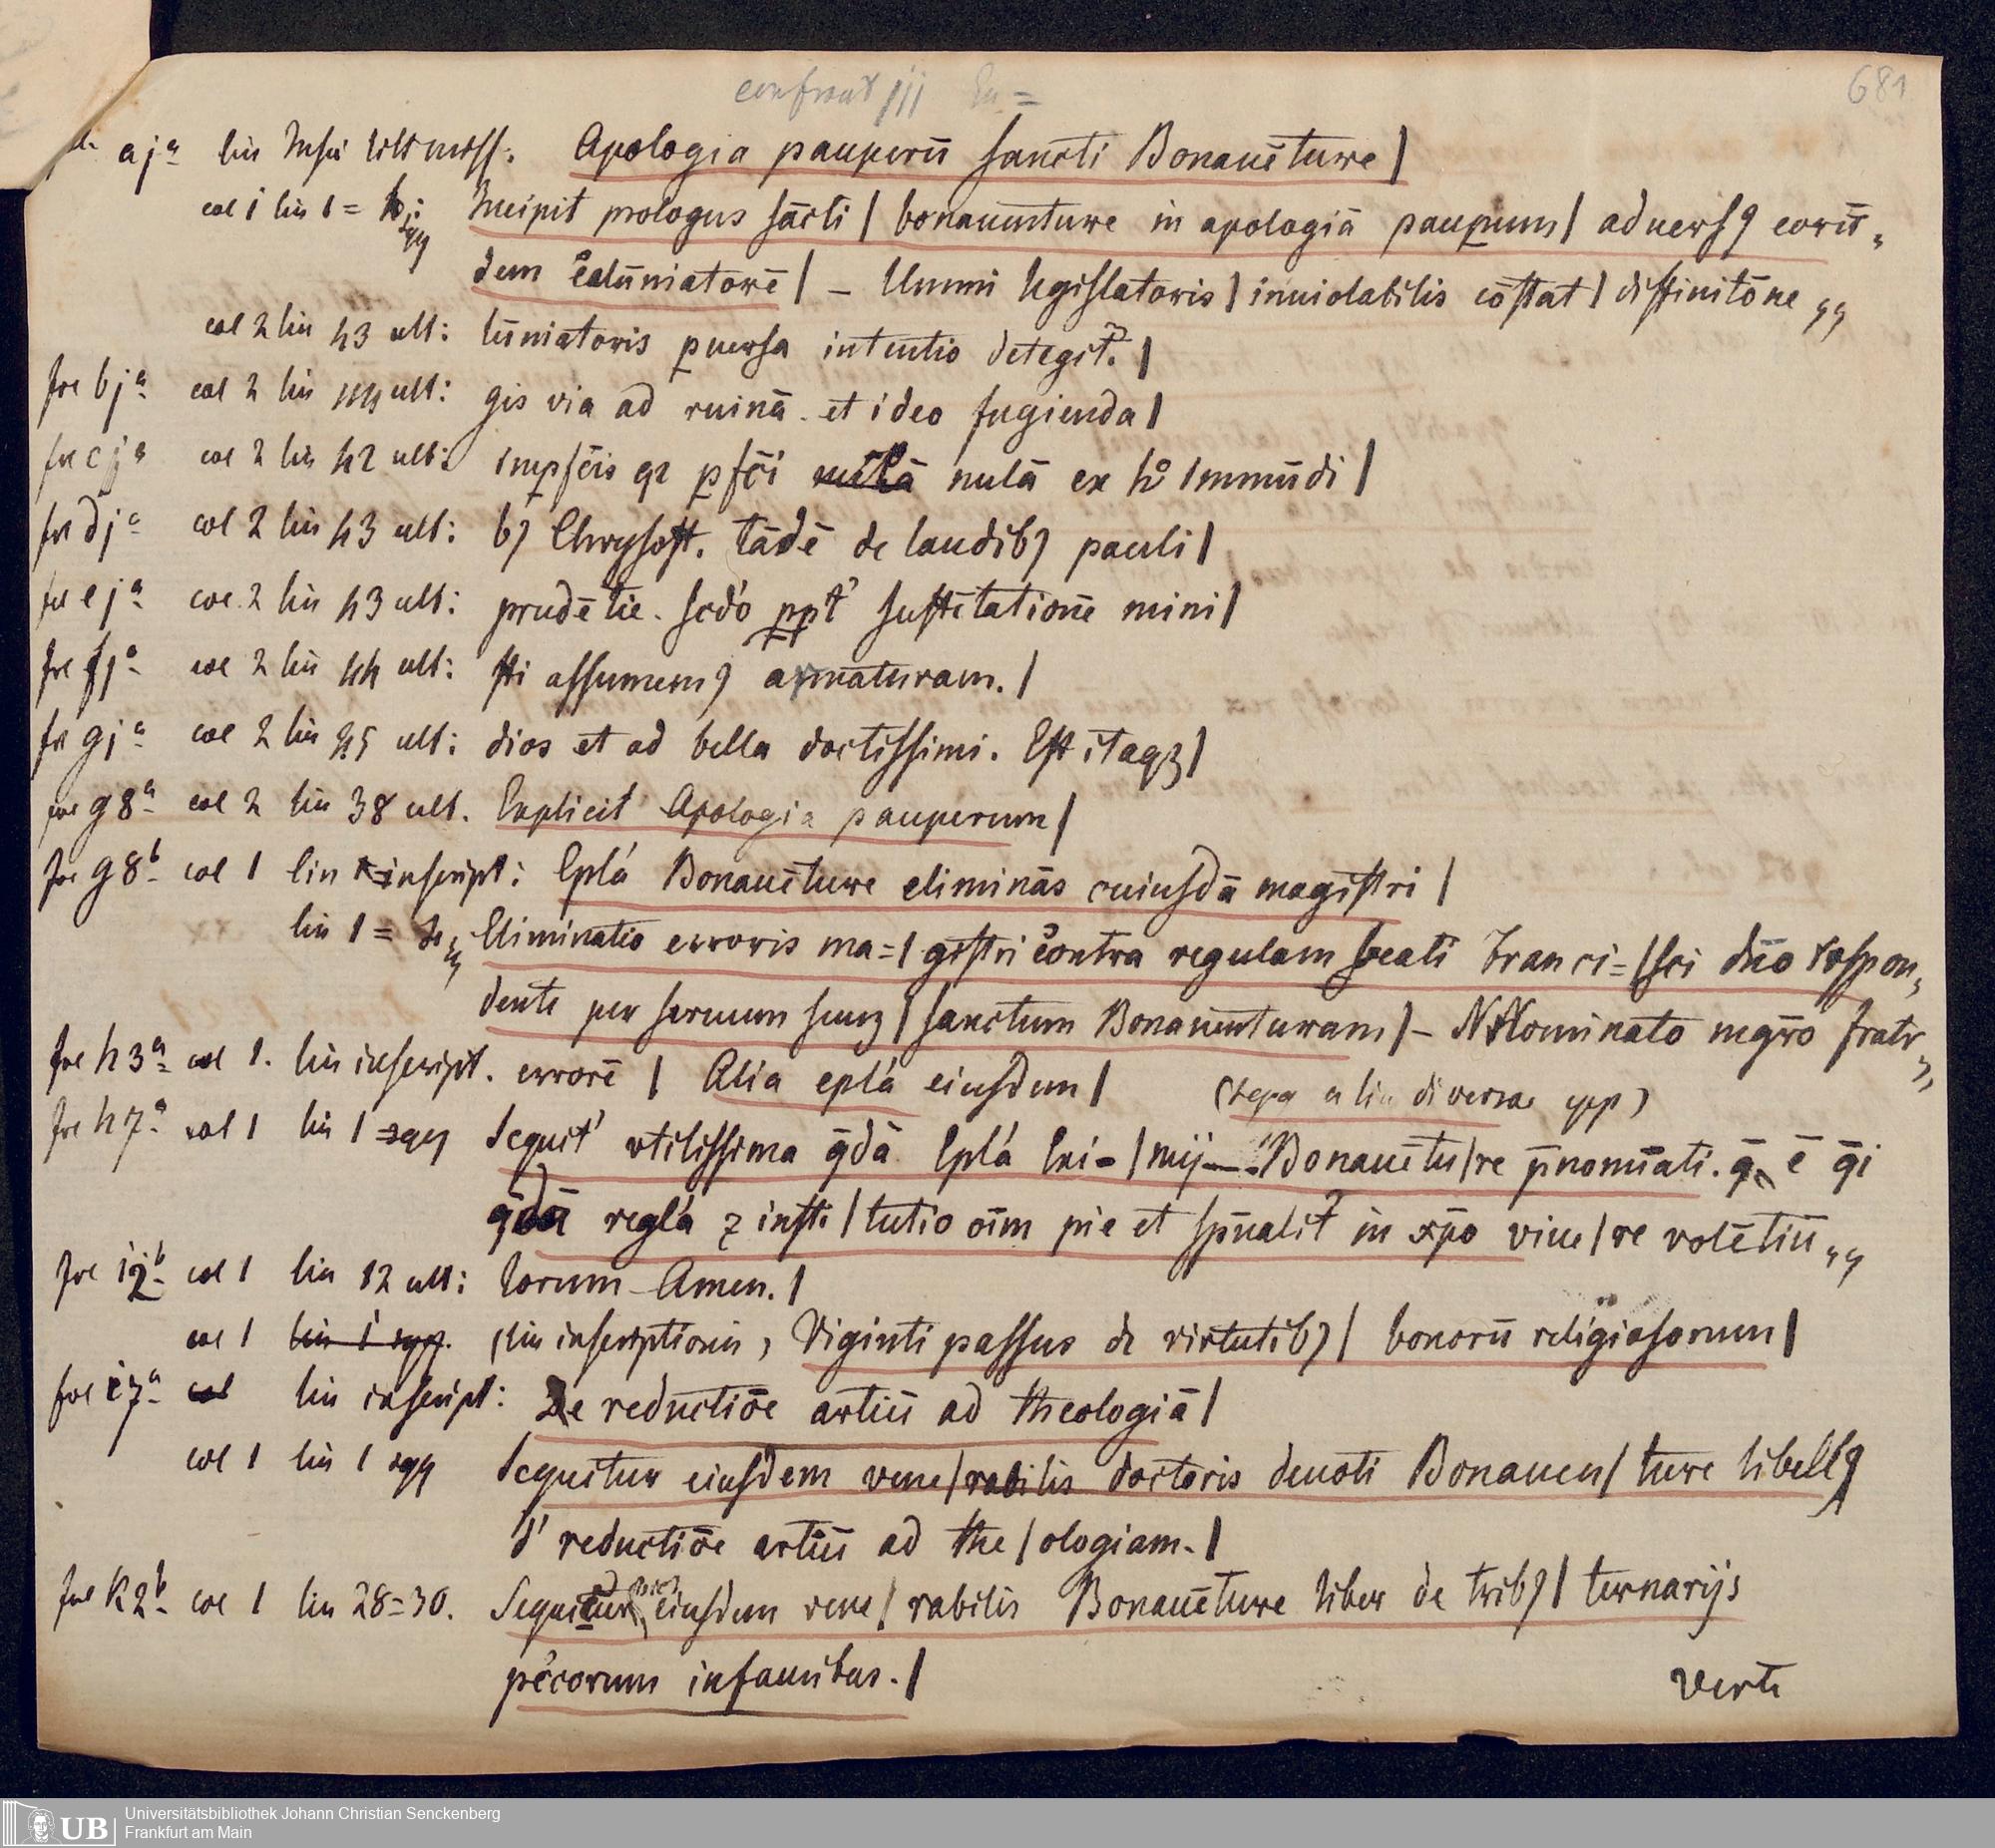 confront jjj
681
aj a lin Apologia pauperū sancti Bonauēture |
col 1 lin 1 = Incipit prologus sācti | bonauenture in apologiā pauꝑum | aduersꝯ eorū„
dem calūniatorē | – Ummi legislatoris | inuiolabilis cōstat | diffinitōne „
col 2 lin 43 ult: lūniatoris ꝑuersa intentio detegit᷑. |
fol bj a col 2 lin 44 ult: gis via ad ruinā . et ideo fugienda |
fol cj a col 2 lin 42 ult: impfcīs qꝛ ꝑfcī nulā ex hº Immūdi |
fol dj a col 2 lin 43 ult: bꝯ Chrysost. tādē de laudibꝯ pauli |
fol ej a col. 2 lin 43 ult: prudētie . scdo ꝓpt' sustētationē mini |
fol fj a col 2 lin 44 ult: sti assumemꝯ armaturam. |
fol gj a col 2 lin 45 ult: dios et ad bella doctissimi. Est itaqꝫ |
fol g8 a col 2 lin 38 ult. Explicit Apologia pauperum |
fol g8 b col 1 lin inscript: Epla Bonauēture eliminās cuiusdā magistri |
lin 1 = Eliminatio erroris ma= | gistri contra regulam beati Franci= | sci dn̄o respon„
dente per seruum suuꝫ | sanctum Bonauenturam | – Nominato mgr̄o fratr„
fol h3 a col 1. lin inscript. errorē | Alia epla eiusdem |
fol h7 a col 1 lin 1 sqq Sequit' vtilissima q̄dā Epla | Bonauētu | re p̄nomīati . q̄ ē q̄i
q̄dā regla ꝛ insti | tutio oīm pie et sp̄ualit' in xp̄o viue | re volētiū „
fol i2 b col 1 lin 12 ult: lorum Amen. |
col 1 lin 1 sqq. (lin inscriptionis) Viginti passus de virtutibꝯ | bonorū religiosorum |
fol i7 a col lin inscript: De reductiōe artiū ad theologiā |
col 1 lin 1 sqq Sequitur eiusdem vene | rabilis doctoris deuoti Bonauen | ture libellꝯ
d' reductiōe artiū ad the | ologiam. |
fol k2 b col 1 lin 28=30. Sequitur eiusdem vene | rabilis Bonauēture liber de tribꝯ | ternarijs
pccorum infamibus. |
Verte
UB Universitätsbibliothek Johann Christian Senckenberg
Frankfurt am Main